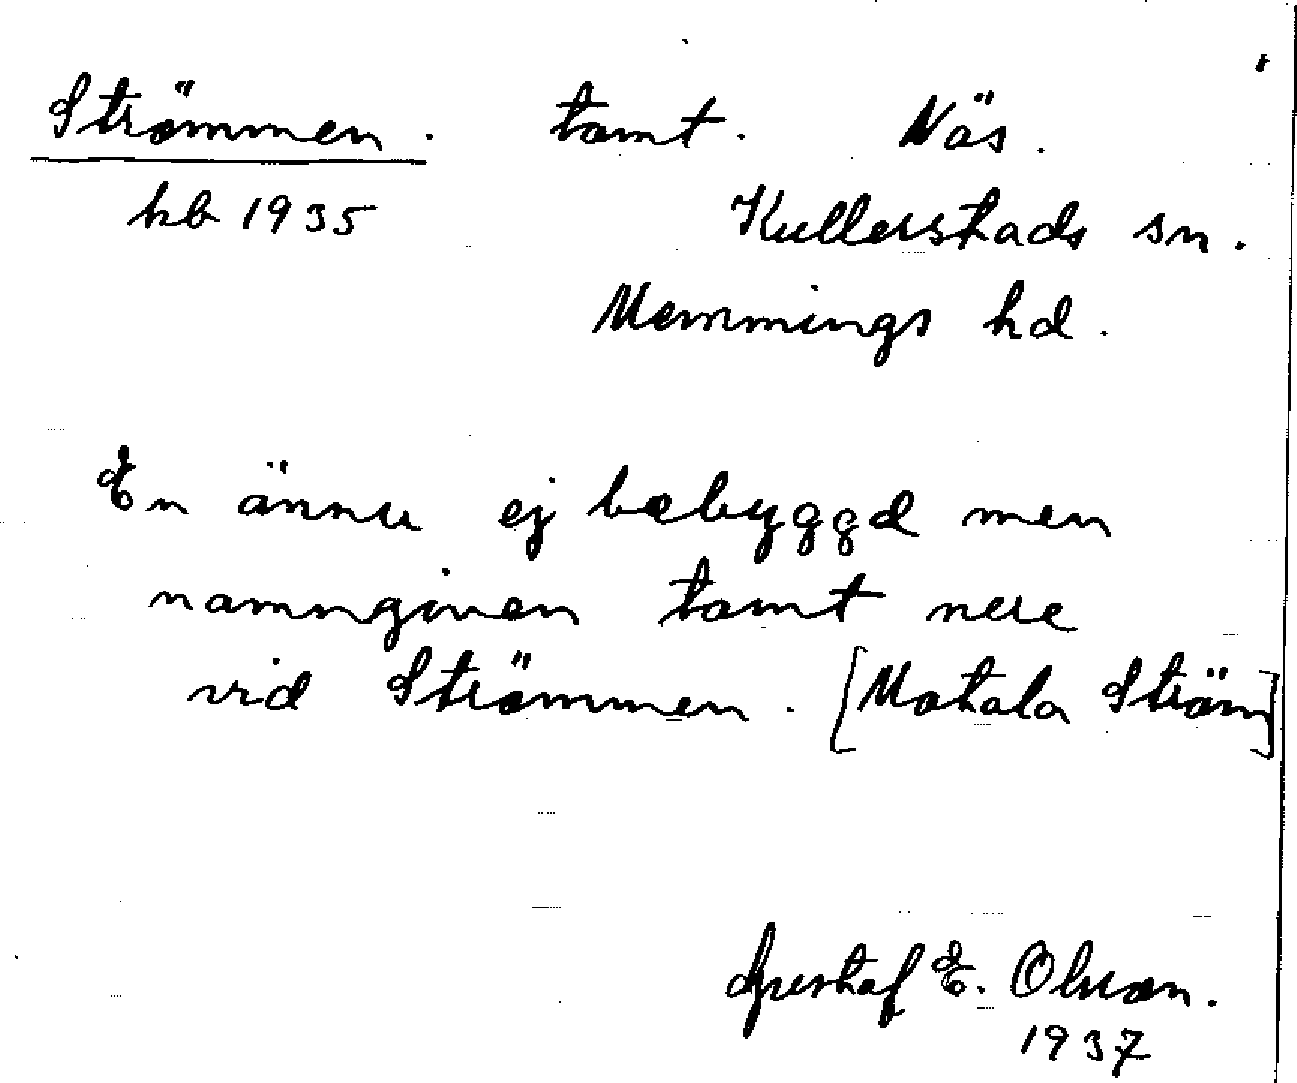 Strömmen. tomt. Näs.
hb 1935 Kullerstads sn.
Memmings hd.
En ännu ej bebyggd men
namngiven tomt nere
vid Strömmen. [Motala Ström]
Gustaf E. Olsson.
1937